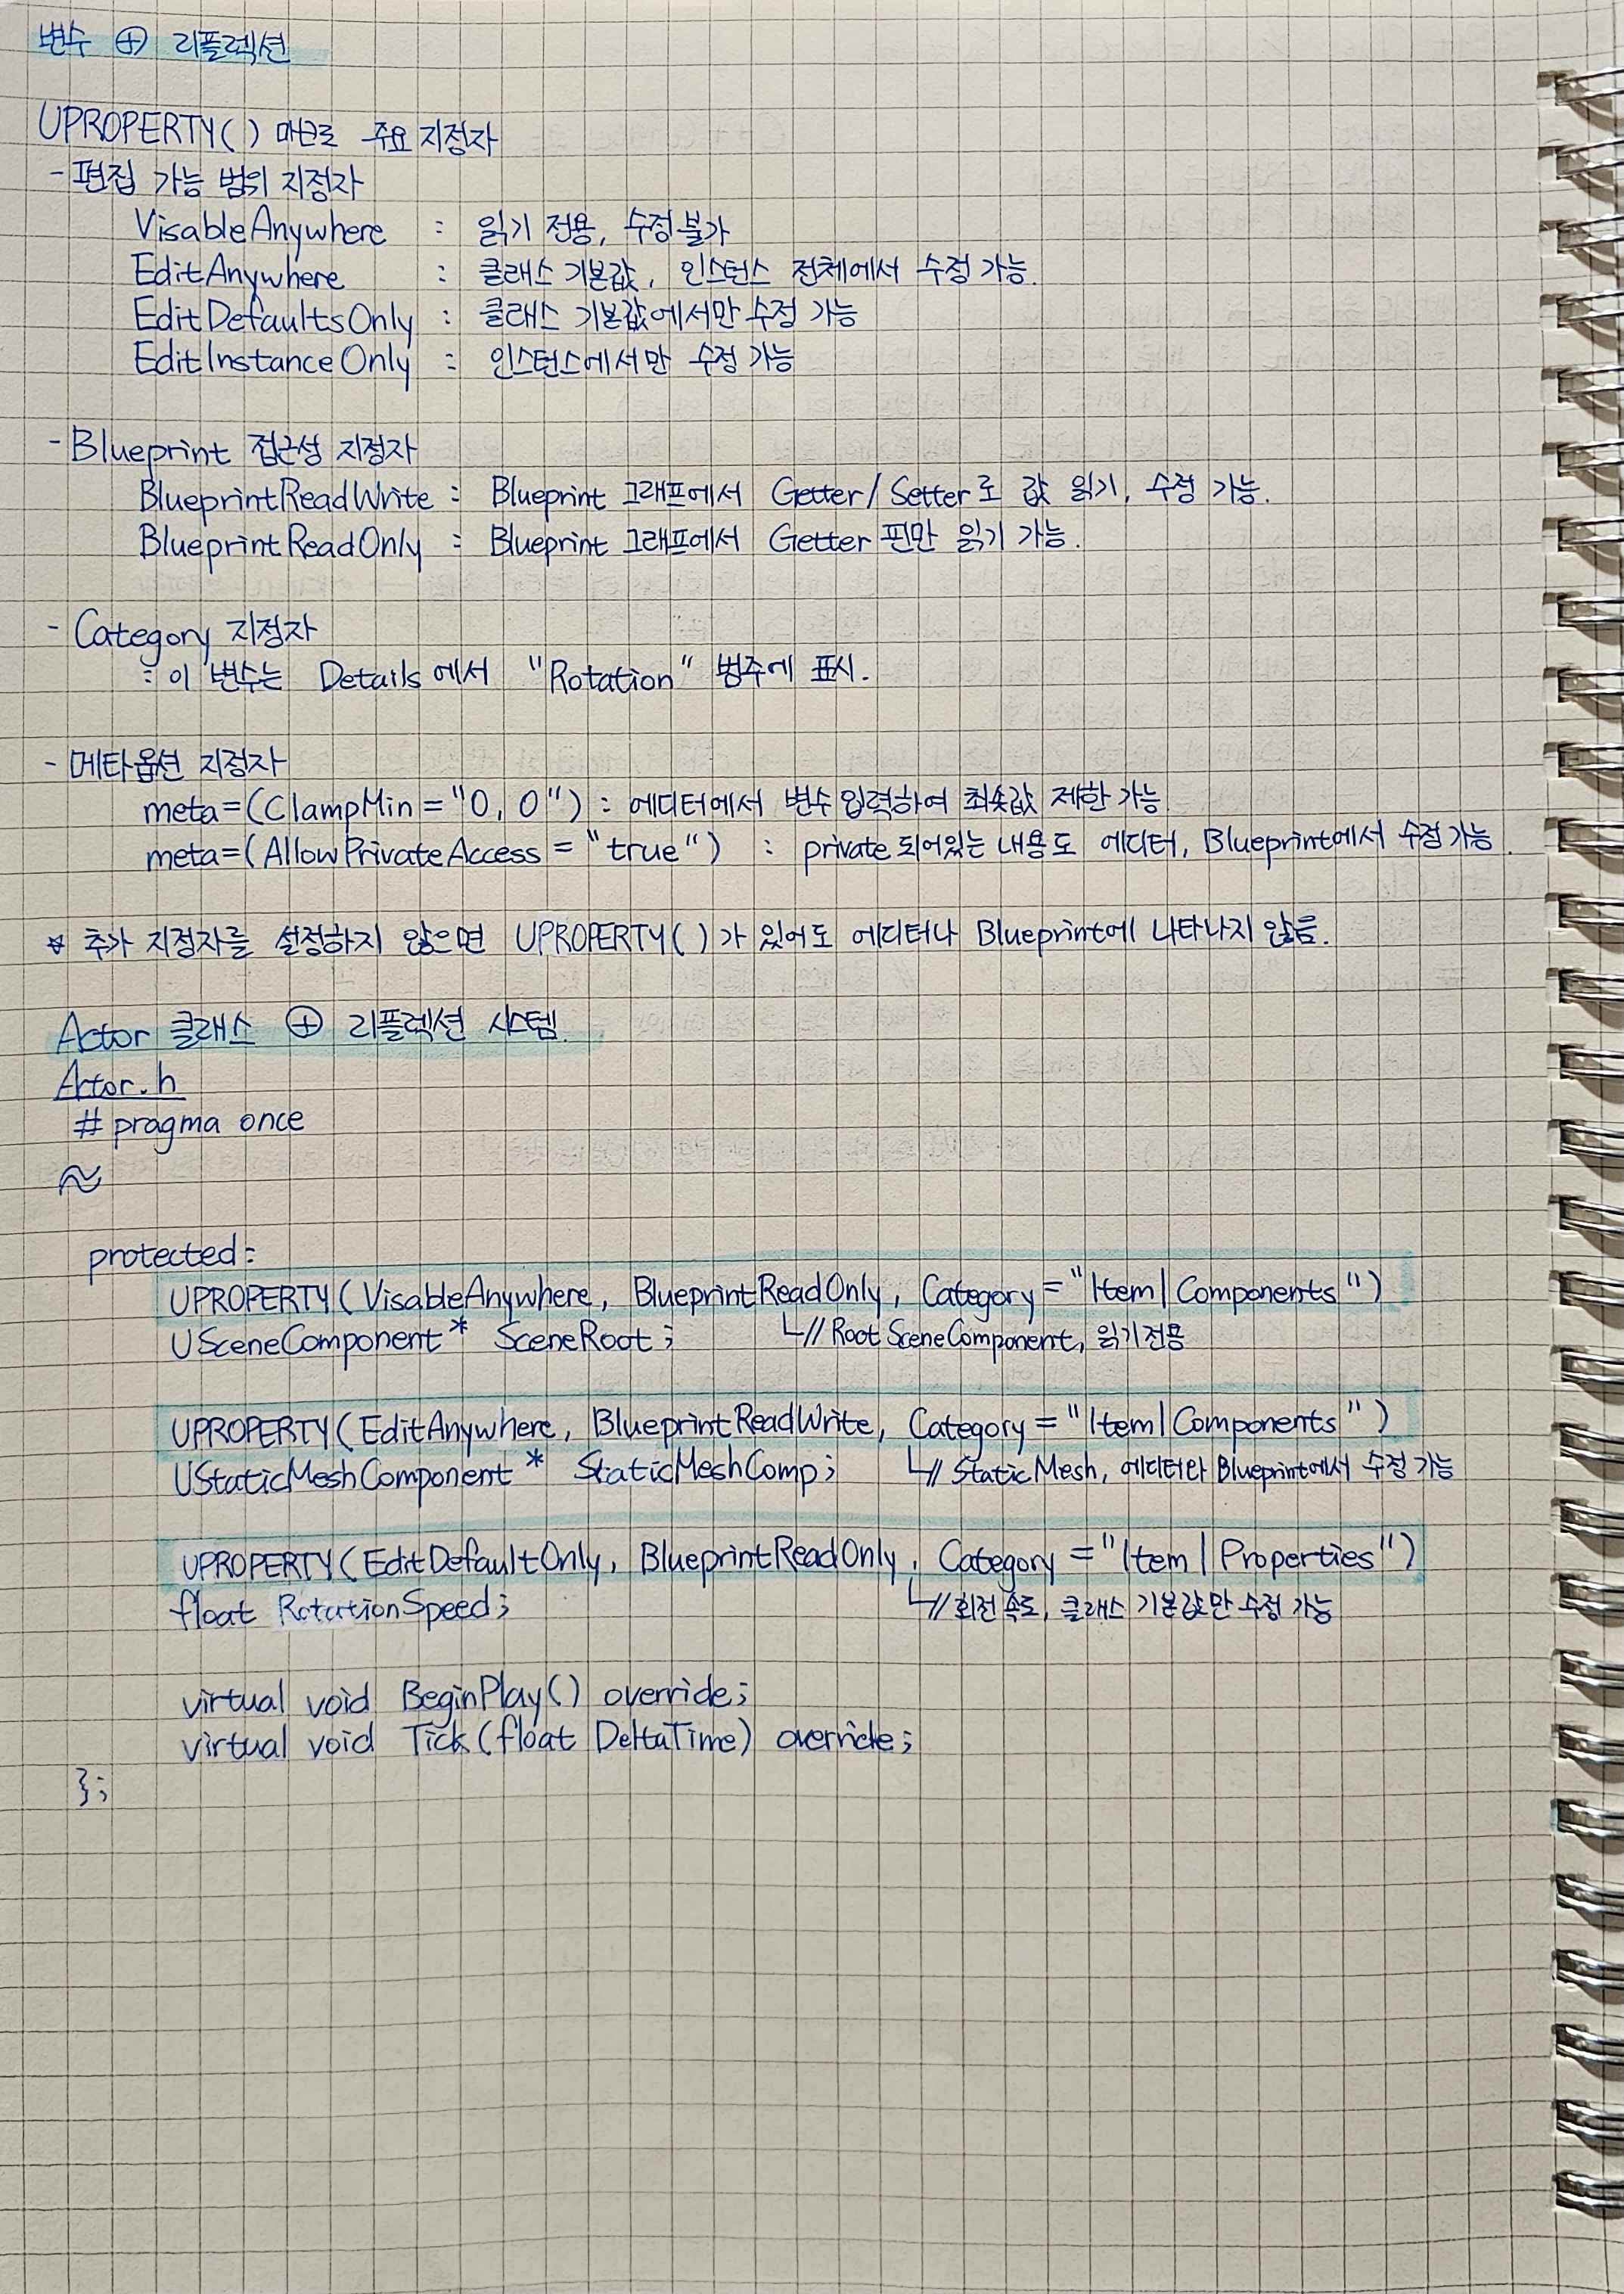 변수 ⊕ 리플렉션
UPROPERTY() 매크로 주요 지정자
- 편집 가능 범위 지정자
VisableAnywhere : 읽기 전용, 수정 불가
EditAnywhere : 클래스 기본값, 인스턴스 전체에서 수정 가능.
EditDefaultsOnly : 클래스 기본값에서만 수정 가능
EditInstanceOnly : 인스턴스에서만 수정 가능
- Blueprint 접근성 지정자
BlueprintReadWrite : Blueprint 그래프에서 Getter/Setter로 값 읽기, 수정 가능.
BlueprintReadOnly : Blueprint 그래프에서 Getter 핀만 읽기 가능.
- Category 지정자
: 이 변수는 Details에서 "Rotation" 범주에 표시.
- 메타옵션 지정자
meta=(ClampMin="0,0") : 에디터에서 변수 입력하여 최솟값 제한 가능
meta=(AllowPrivateAccess="true") : private 되어있는 내용도 에디터, Blueprint에서 수정 가능.
* 추가 지정자를 설정하지 않으면 UPROPERTY()가 있어도 에디터나 Blueprint에 나타나지 않음.
Actor 클래스 ⊕ 리플렉션 시스템.
Actor.h
#pragma once
≈
protected:
UPROPERTY(VisableAnywhere, BlueprintReadOnly, Category="Item|Components")
USceneComponent* SceneRoot; └// Root SceneComponent, 읽기전용
UPROPERTY(EditAnywhere, BlueprintReadWrite, Category="Item|Components")
UStaticMeshComponent* StaticMeshComp; └// StaticMesh, 에디터와 Blueprint에서 수정 가능
UPROPERTY(EditDefaultOnly, BlueprintReadOnly, Category="Item|Properties")
float RotationSpeed; └// 회전 속도, 클래스 기본값만 수정 가능
virtual void BeginPlay() override;
virtual void Tick(float DeltaTime) override;
};